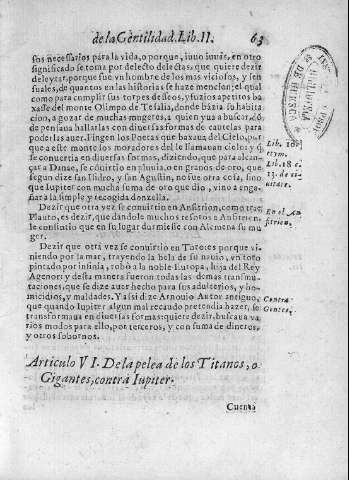 de la Gẽtilidad. Lib. II. 63
sos necessarios para la vida, o porque, iuuo iuuâs, en otro
significado se toma por delecto delectas, que quiere dezir
deleytar, porque fue vn hombre de los mas viciosos, y sen
suales, de quantos en las historias se haze mencion; el qual
como para cumplir sus torpes deseos, y suzios apetitos ba
xasse del monte Olimpo de Tesalia, donde hazia su habita
cion, a gozar de muchas mugeres, a quien yua a buscar, dõ
de pensaua hallarlas con diuersas formas de cautelas para
poderlas auer. Fingen los Poetas que baxaua del Cielo, por
que a este monte los moradores del le llamauan cielo: y q̃
se conuertia en diuersas formas, diziendo, que para alcan-
çar a Danae, se cõuirtio en pluuia, o en granos de oro, que
segun dize san Isidro, y san Agustin, no fue otra cosa, sino
que Iupiter con mucha suma de oro que dio, vino a enga-
ñar a la simple y recogida donzella.
Lib. 10.
Lib. 18 c.
13. de ci-
uitate.
Dezir que otra vez se conuirtio en Anfitrion, como trae
Plauto, es dezir, que dandole muchos tesoros a Anfitrion,
le consintio que en su lugar durmiesse con Alcmena su mu
ger.
En el An
fitrion.
Dezir que otra vez se conuirtio en Toro: es porque vi-
niendo por la mar, trayendo la popa de su nauio, vn toro
pintado por insinia, robò a la noble Europa, hija del Rey
Agenor; y desta manera fueron todas las demas transmu-
taciones, que se dize auer hecho para sus adulterios, y ho-
micidios, y maldades. Y assi dize Arnouio Autor antiguo,
que quando Iupiter algun mal recaudo pretendia hazer, se
transformaua en diuersas formas: quiere dezir, buscaua va
rios modos para ello, por terceros, y con suma de dineros,
y otros sobornos.
Contra
Gentes.
Articulo VI. De la pelea de los Titanos, o
Gigantes, contra Iupiter.
Cuenta